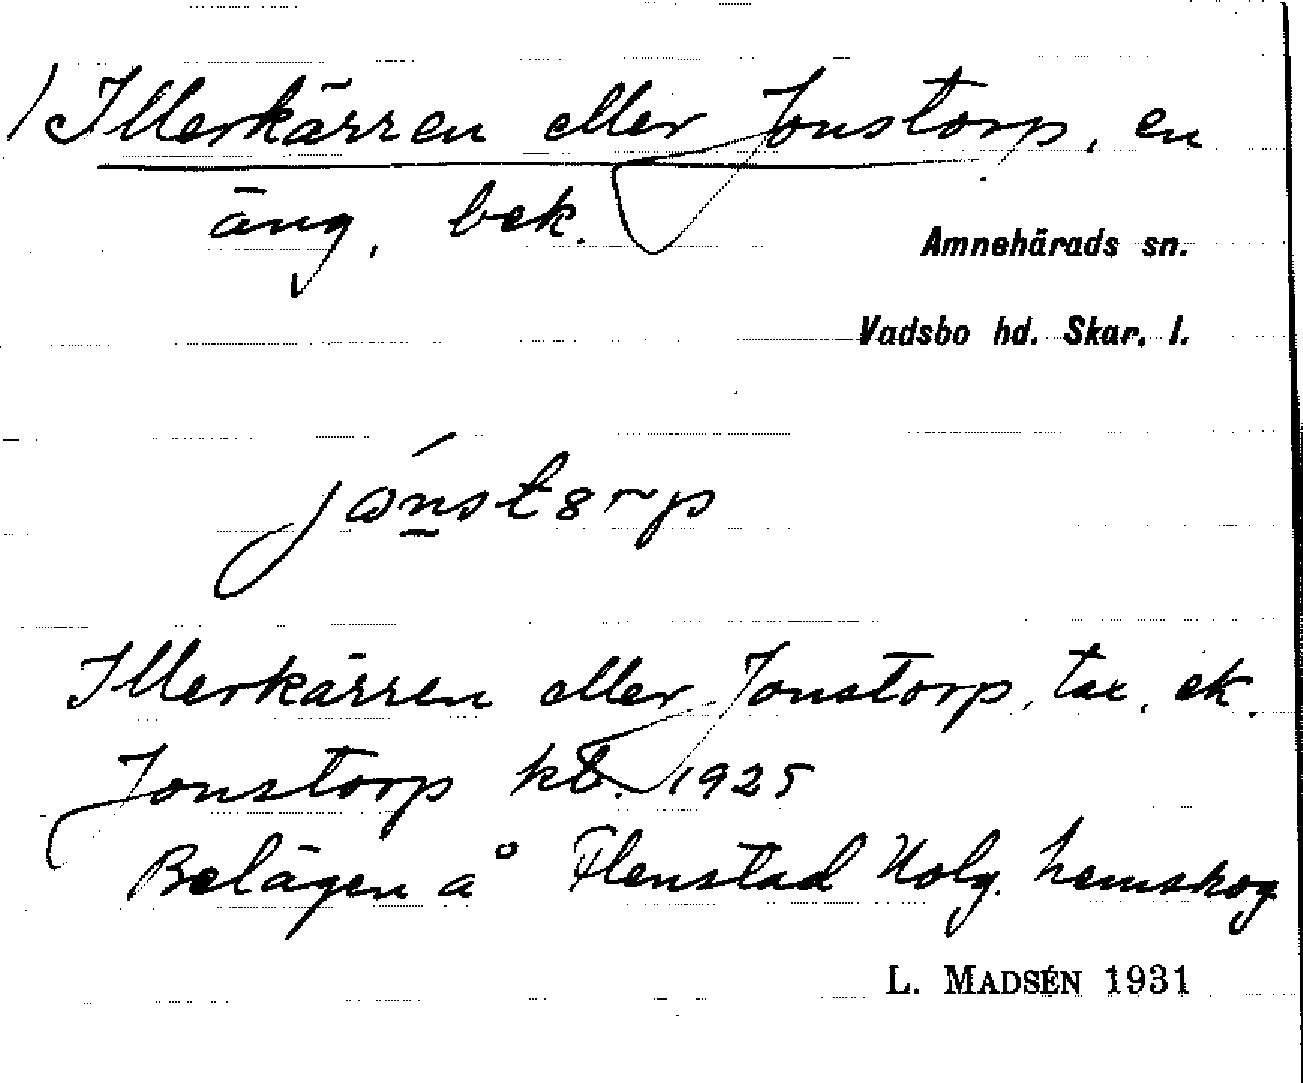 1) Illerkärren eller Jonstorp, en
äng, bek.
Amnehärads sn.
Vadsbo hd. Skar. l.
jónstorp
Illerkärren eller Jonstorp, tax. ek.
Jonstorp kb. 1925
Belägen å Flenstad Holg. hemskog
L. MADSÉN 1931